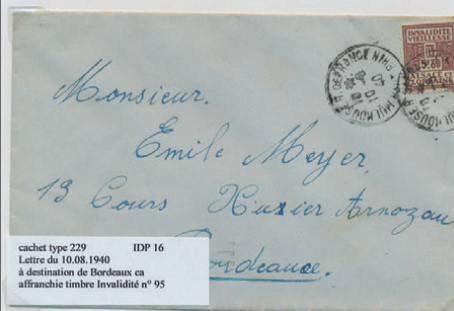 INVALIDITÉ
VIEILLESSE
ALSACE ET
LORRAINE
MULHOUSE
RHIN
Monsieur.
Emile Meyer
13 Cours Xavier Arnozau
Bordeaux.
cachet type 229 IDP 16
Lettre du 10.08.1940
à destination de Bordeaux ca
affranchie timbre Invalidité n° 95